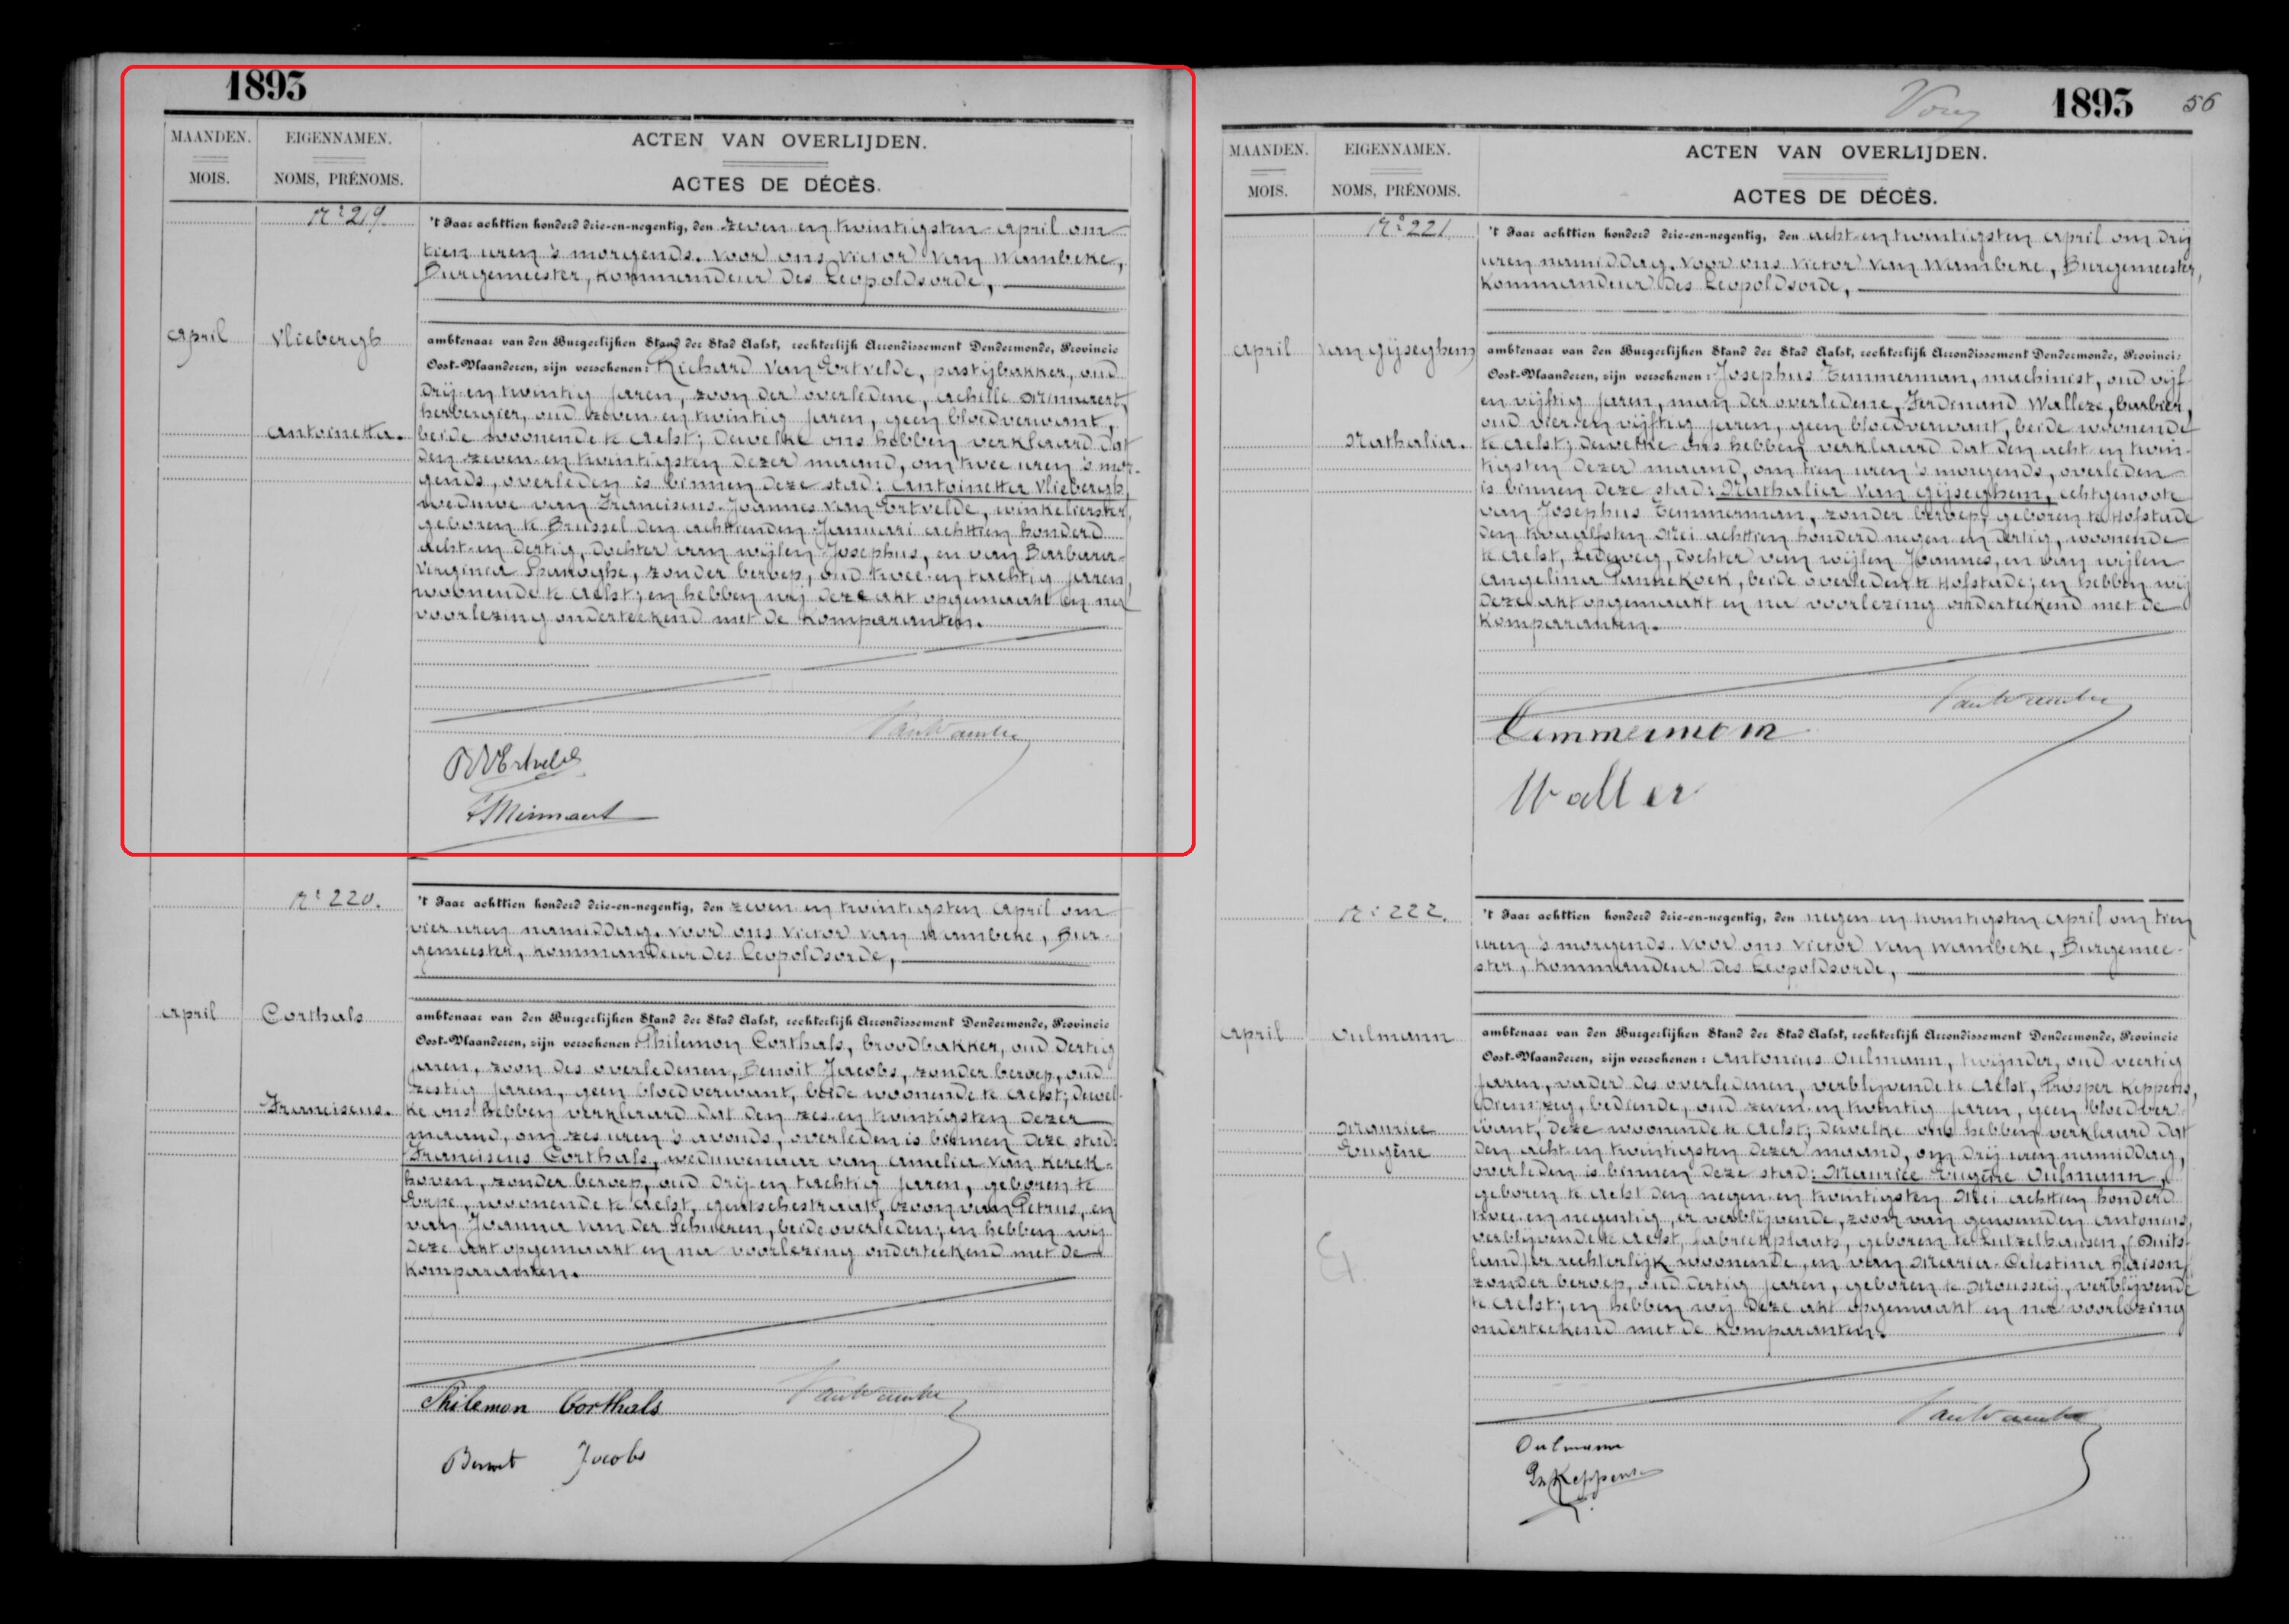 1893
MAANDEN.
MOIS.
EIGENNAMEN.
NOMS, PRÉNOMS.
ACTEN VAN OVERLIJDEN.
ACTES DE DÉCÈS.
Nr 219.
April
Vliebergh
Antoinetta.
't Jaar achttien honderd drie-en-negentig, den zeven en twintigsten April om
tien uren 's morgends. Voor ons Victor Van Wambeke,
Burgemeester, Kommandeur des Leopoldsorde,
ambtenaar van den Burgerlijken Stand der Stad Aalst, rechterlijk Arrondissement Dendermonde, Provincie
Oost-Vlaanderen, zijn verschenen: Richard Van Ertvelde, pasteijbakker, oud
drij en twintig jaren, zoon der overledene, Achille Minnaert,
herbergier, oud zeven en twintig jaren, geen bloedverwant,
beide woonende te Aelst; dewelke ons hebben verklaard dat
den zeven en twintigsten dezer maand, om twee uren 's mor-
gends, overleden is binnen deze stad: Antoinetta Vliebergh,
weduwe van Franciscus-Joannes Van Ertvelde, winkelierster,
geboren te Brussel den achttienden Januari achttien honderd
acht en dertig, dochter van wijlen Josephus, en van Barbara-
Virginia Spanoghe, zonder beroep, oud twee en tachtig jaren,
woonende te Aelst; en hebben wij deze akt opgemaakt en na
voorlezing onderteekend met de Komparanten.
VanWambeke
RVErtvelde
Minnaert
Nr 220.
April
Corthals
Franciscus.
't Jaar achttien honderd drie-en-negentig, den zeven en twintigsten April om
vier uren namiddag. Voor ons Victor Van Wambeke, Bur-
gemeester, Kommandeur des Leopoldsorde,
ambtenaar van den Burgerlijken Stand der Stad Aalst, rechterlijk Arrondissement Dendermonde, Provincie
Oost-Vlaanderen, zijn verschenen: Philemon Corthals, broodbakker, oud dertig
jaren, zoon des overledenen, Benoit Jacobs, zonder beroep, oud
zestig jaren, geen bloedverwant, beide woonende te Aelst; dewel-
ke ons hebben verklaard dat den zes en twintigsten dezer
maand, om zes uren 's avonds, overleden is binnen deze stad:
Franciscus Corthals, weduwenaar van Amelia Van Kerck-
hoven, zonder beroep, oud drij en tachtig jaren, geboren te
Erpe, woonende te Aelst, Gentschestraat, zoon van Petrus, en
van Joanna Van der Schueren, beide overleden; en hebben wij
deze akt opgemaakt en na voorlezing onderteekend met de
Komparanten.
VanWambeke
Philemon Corthals
Benoit Jacobs
1893
56
MAANDEN.
MOIS.
EIGENNAMEN.
NOMS, PRÉNOMS.
ACTEN VAN OVERLIJDEN.
ACTES DE DÉCÈS.
Nr 221.
April
Van Gijseghem
Nathalia.
't Jaar achttien honderd drie-en-negentig, den acht en twintigsten April om drij
uren namiddag. Voor ons Victor Van Wambeke, Burgemeester,
Kommandeur des Leopoldsorde,
ambtenaar van den Burgerlijken Stand der Stad Aalst, rechterlijk Arrondissement Dendermonde, Provincie
Oost-Vlaanderen, zijn verschenen: Josephus Temmerman, machinist, oud vijf
en vijftig jaren, man der overledene, Ferdinand Walleze, barbier,
oud vier en vijftig jaren, geen bloedverwant, beide woonende
te Aelst; dewelke ons hebben verklaard dat den acht en twin-
tigsten dezer maand, om tien uren 's morgends, overleden
is binnen deze stad: Nathalia Van Gijseghem, echtgenoote
van Josephus Temmerman, zonder beroep, geboren te Hofstade
den twaalfsten Mei achttien honderd negen en dertig, woonende
te Aelst, Ledeweg, dochter van wijlen Joannes, en van wijlen
Angelina Pannekoek, beide overleden te Hofstade; en hebben wij
deze akt opgemaakt en na voorlezing onderteekend met de
Komparanten.
VanWambeke
Temmerman
Nr 222.
April
Oulmann
Maurice
Eugène
't Jaar achttien honderd drie-en-negentig, den negen en twintigsten April om tien
uren 's morgends. Voor ons Victor Van Wambeke, Burgemee-
ster, Kommandeur des Leopoldsorde,
ambtenaar van den Burgerlijken Stand der Stad Aalst, rechterlijk Arrondissement Dendermonde, Provincie
Oost-Vlaanderen, zijn verschenen: Antonius Oulmann, twijnder, oud veertig
jaren, vader des overledenen, verblijvende te Aelst, Prosper Keppens,
bediende, oud zeven en twintig jaren, geen bloedver-
want, deze woonende te Aelst; dewelke ons hebben verklaard dat
den acht en twintigsten dezer maand, om drij uren namiddag,
overleden is binnen deze stad: Maurice Eugène Oulmann,
geboren te Aelst den negen en twintigsten Mei achttien honderd
twee en negentig, er verblijvende, zoon van genoemden Antonius,
verblijvende te Aelst, fabriekplaats, geboren te Lutzelhausen, (Duits-
land) er rechterlijk woonende, en van Maria-Celestina Blaison,
zonder beroep, oud dertig jaren, geboren te Moussey, verblijvende
te Aelst; en hebben wij deze akt opgemaakt en na voorlezing
onderteekend met de Komparanten.
VanWambeke
Oulmann
Keppens